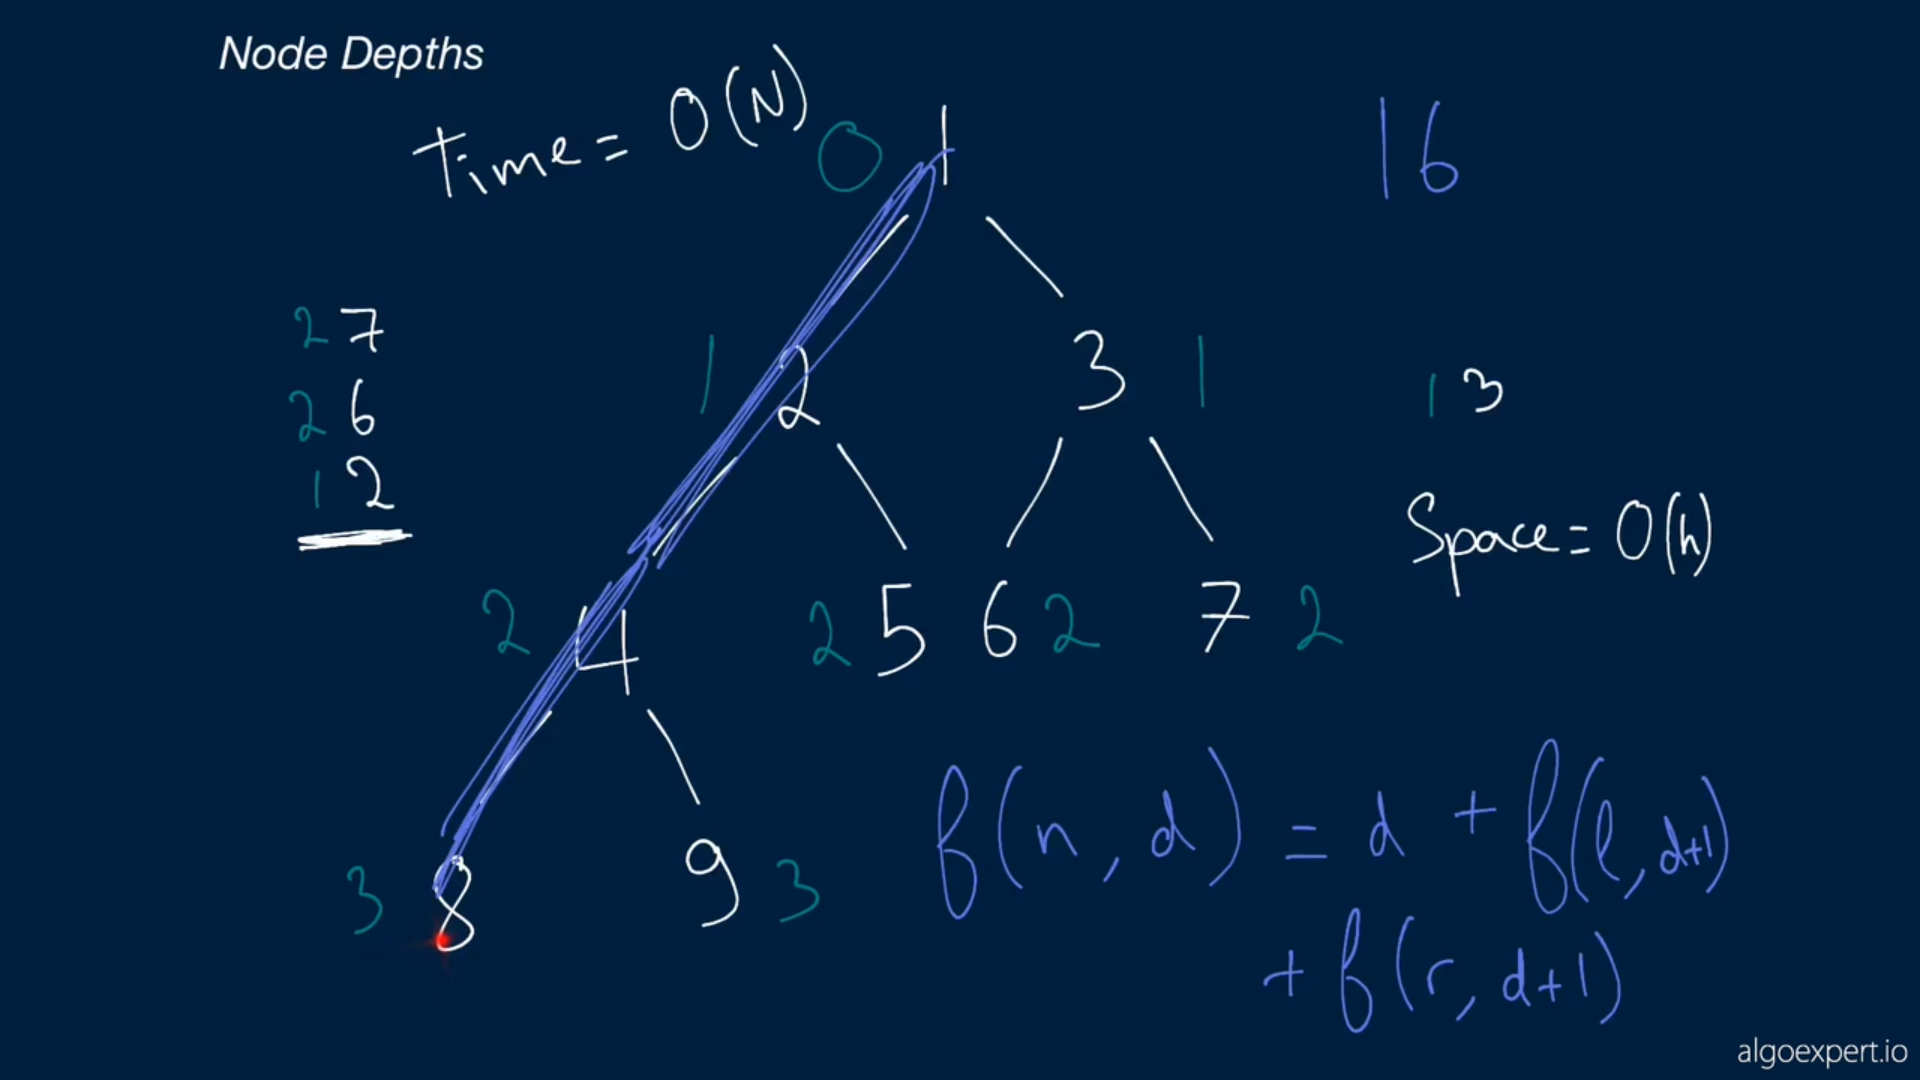 Node Depths
Time = O(N)
0 1
16
2 7
2 6
1 2
1 2
3 1
1 3
Space = O(h)
2 4
2 5
6 2
7 2
3 8
9 3
f(n, d) = d + f(l, d+1)
+ f(r, d+1)
algoexpert.io